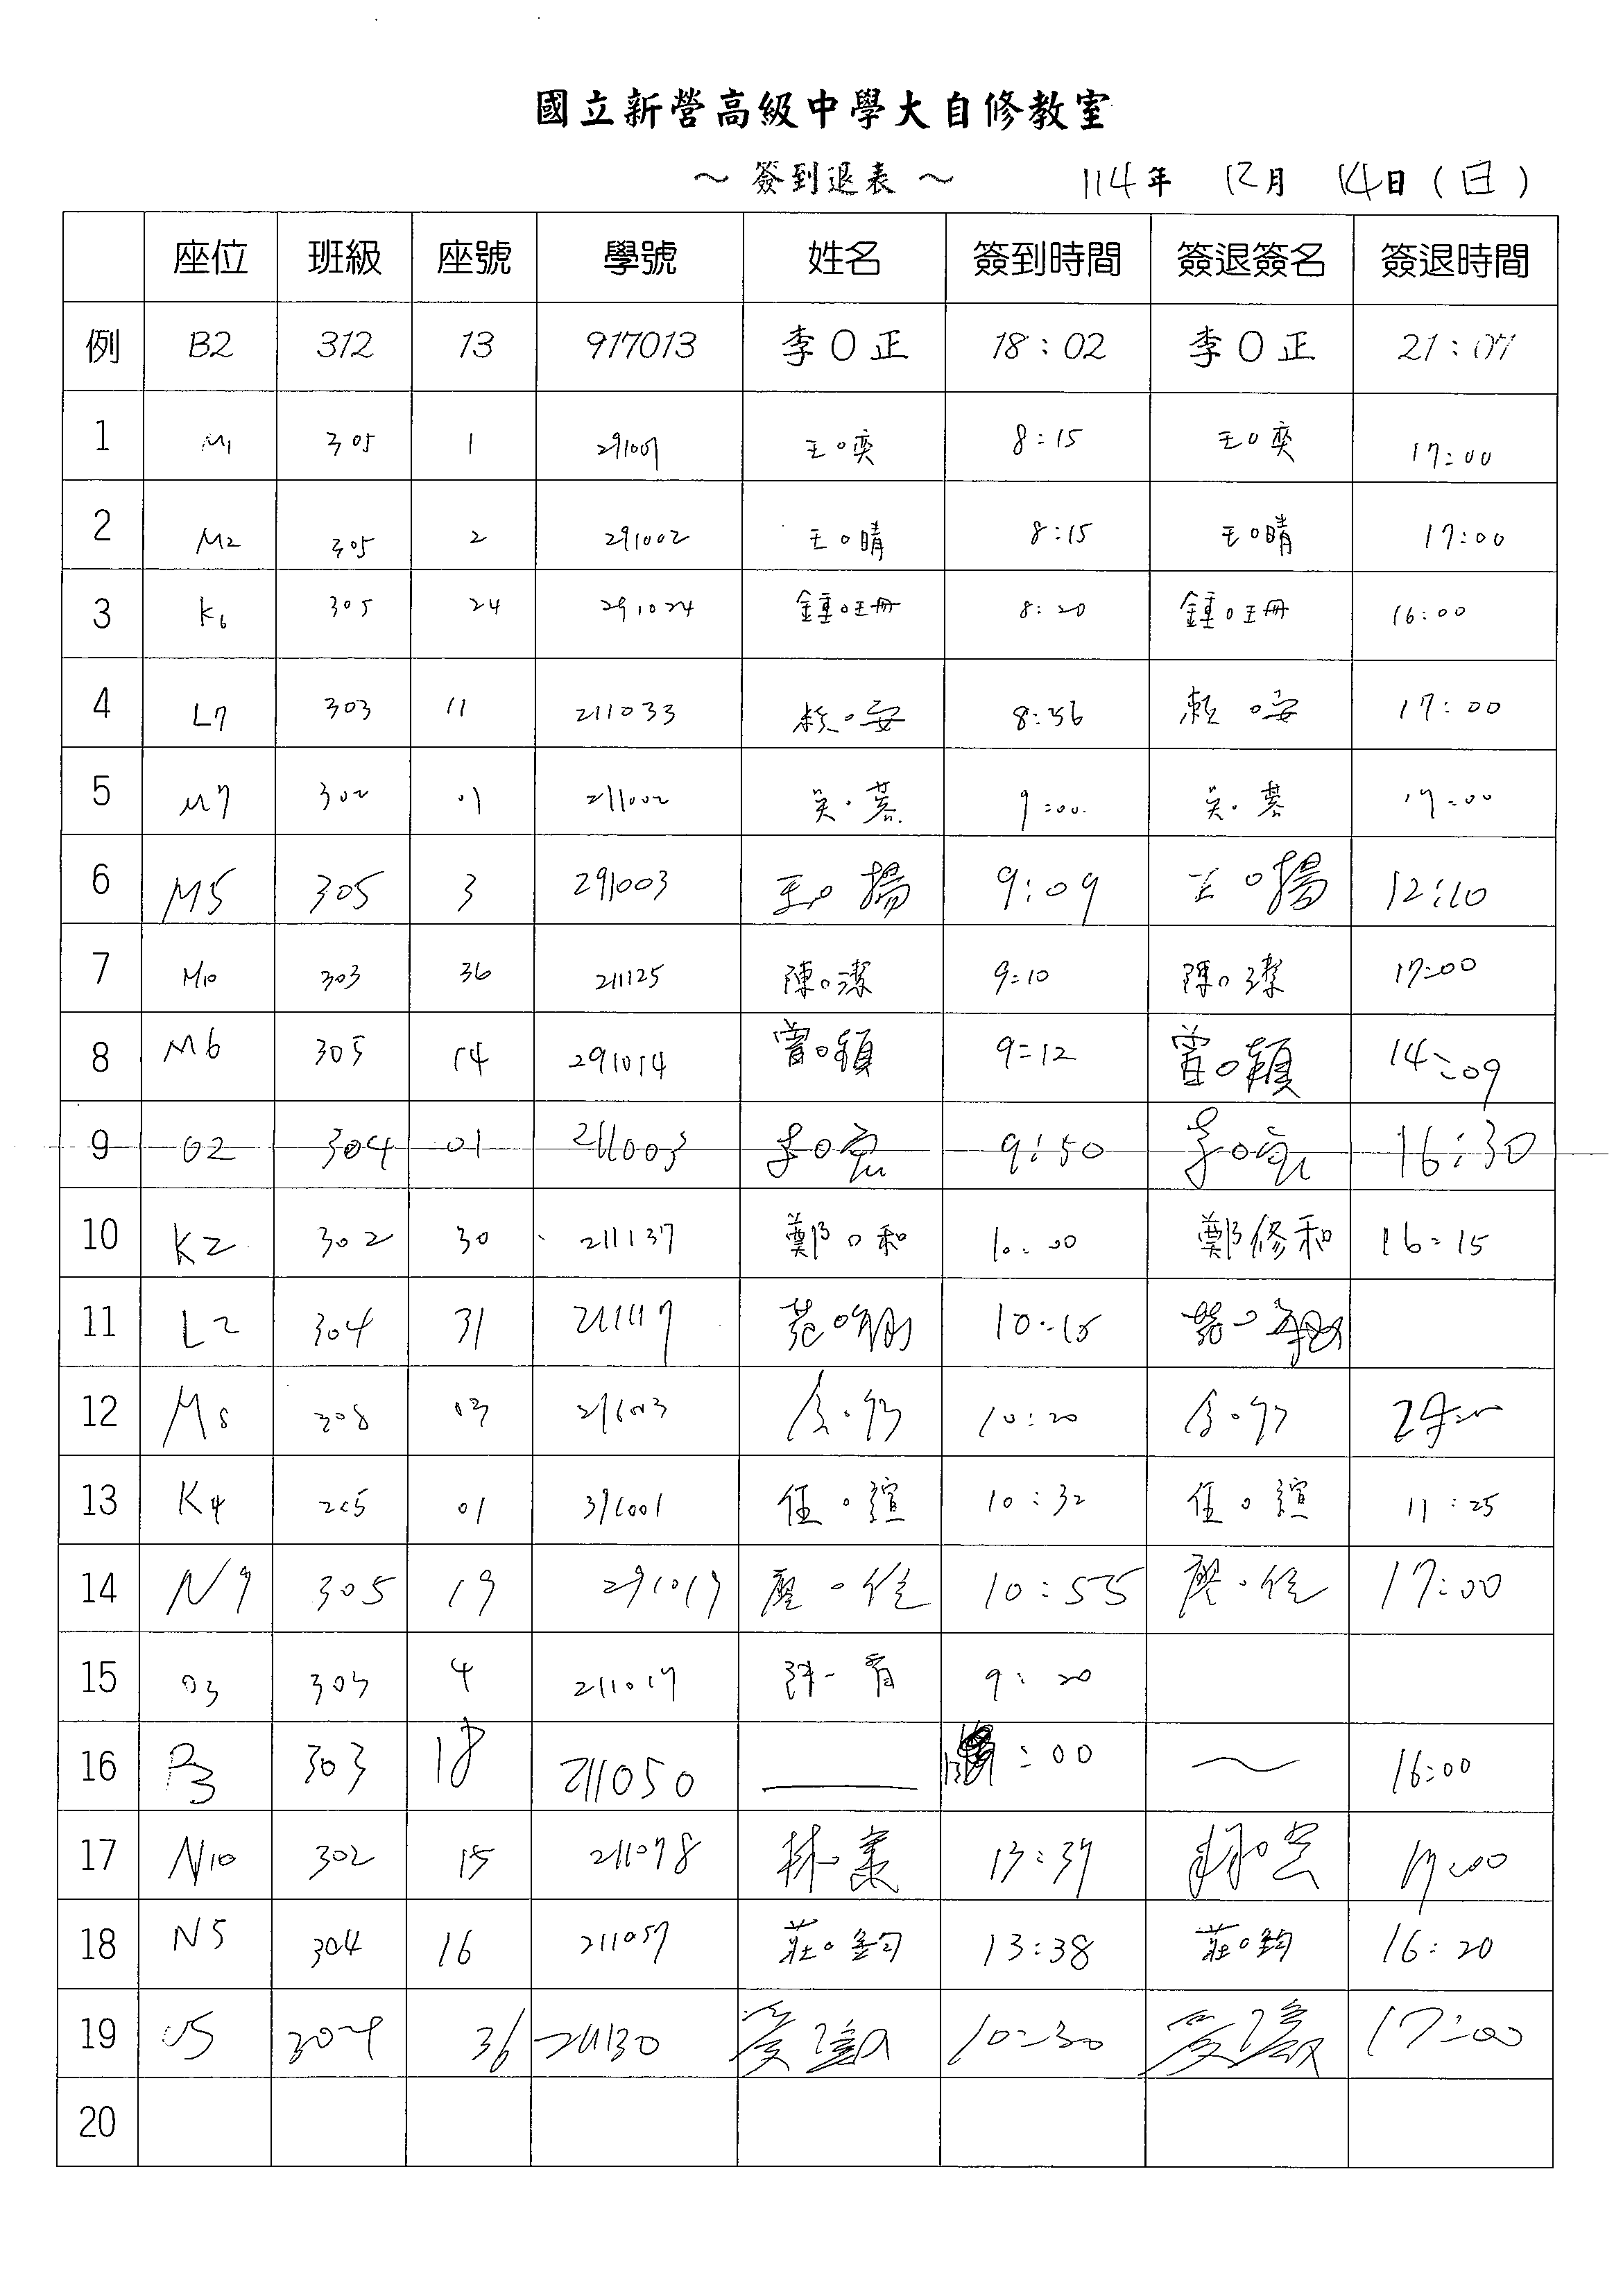 國立新營高級中學大自修教室
～ 簽到退表 ～ 114年 12月 14日 (日)
座位 班級 座號 學號 姓名 簽到時間 簽退簽名 簽退時間
例 B2 312 13 917013 李O正 18:02 李O正 21:07
1 M1 305 1 291001 王O奕 8:15 王O奕 17:00
2 M2 305 2 291002 王O晴 8:15 王O晴 17:00
3 K6 305 24 291024 鍾O珊 8:20 鍾O珊 16:00
4 L7 303 11 211033 賴O安 8:56 賴O安 17:00
5 M7 302 01 211002 吳O蓁 9:00 吳O蓁 17:00
6 M5 305 3 291003 王O揚 9:09 王O揚 12:10
7 M10 303 36 211125 陳O潔 9:10 陳O潔 17:00
8 M6 305 14 291014 曾O穎 9:12 曾O穎 14:09
9 O2 304 01 211003 李O宸 9:50 李O宸 16:30
10 K2 302 30 211137 鄭O和 10:00 鄭修和 16:15
11 L2 304 31 211117 10:15
12 M8 308 03 10:20
13 K4 205 01 391001 任O誼 10:32 任O誼 11:25
14 N9 305 19 291019 10:55 17:00
15 O3 303 4 211017 9:20
16 P3 303 18 211050 :00 16:00
17 N10 302 15 211078 13:37 17:00
18 N5 304 16 211057 莊O鈞 13:38 莊O鈞 16:20
19 304 36 211130 10:30 17:00
20